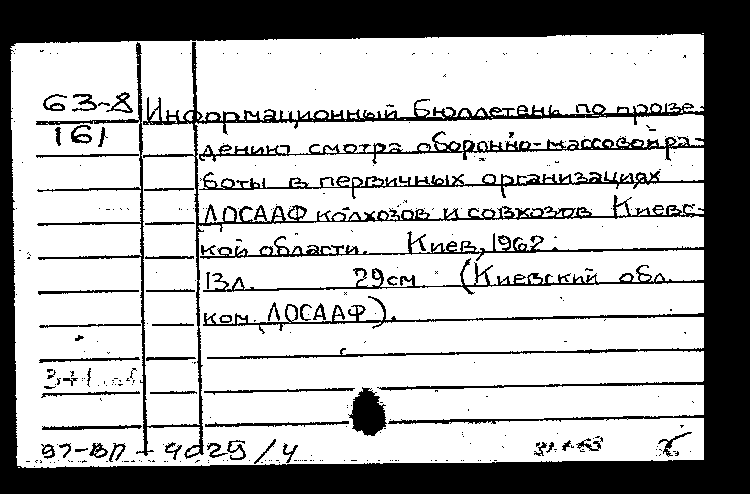 63-8 Информационный бюллетень по прове-
161
дению смотра оборонно-массовой ра-
боты в первичных организациях
ДОСААФ колхозов и совхозов Киевс-
кой области. Киев, 1962.
13л. 29см. (Киевский обл.
ком. ДОСААФ).
97-ВП-4029/4